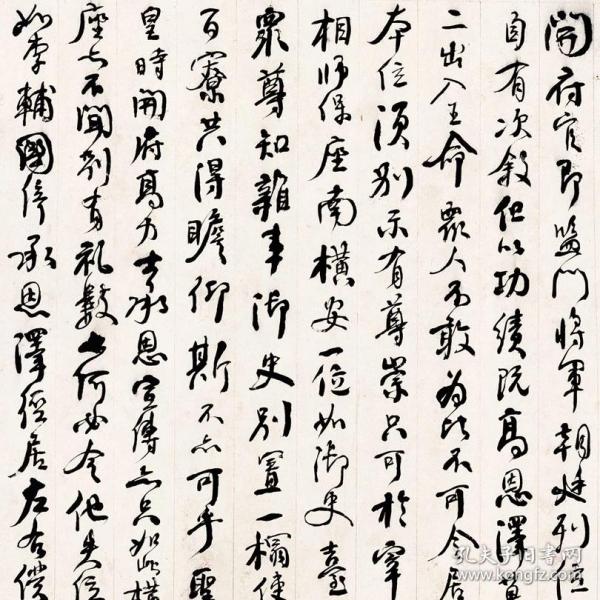 開府官即監門將軍朝廷列位
自有次敘但以功績既高恩澤莫
二出入王命眾人不敢為比不可令居
本位須別示有尊崇只可於宰
相師保座南橫安一位如御史臺
眾尊知雜事御史別置一榻使
百寮共得瞻仰斯不亦可乎聖
皇時開府高力士承恩宣傳亦只如此橫
座亦不聞別有禮數亦何必令他失位
如李輔國倚承恩澤徑居左右僕
孔夫子旧书网
www.kongfz.com